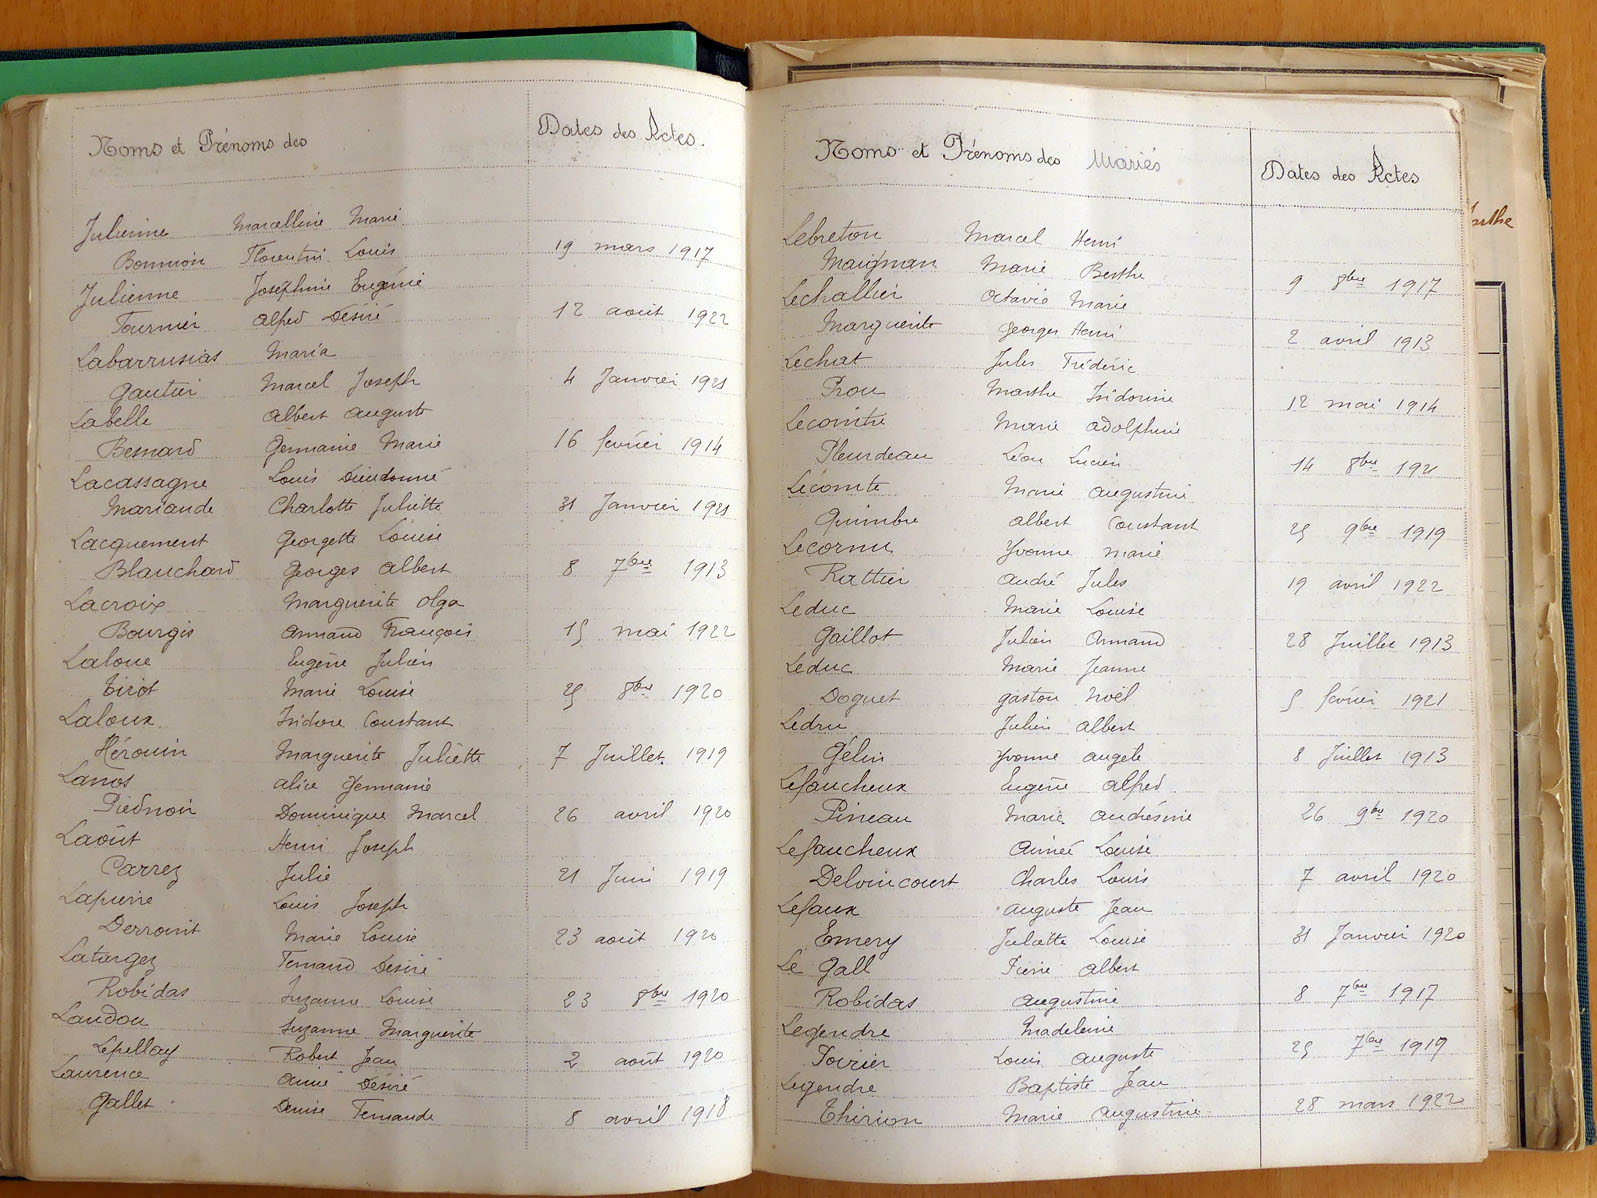 Noms et Prénoms des Dates des Actes.
Julienne Marcelline Marie
Bonnoin Florentin Louis 19 mars 1917
Julienne Joséphine Eugénie
Fournier Alfred Désiré 12 août 1922
Labarrusias Maria
Gautier Marcel Joseph 4 Janvier 1921
Labelle Albert Auguste
Besnard Germaine Marie 16 février 1914
Lacassagne Louis Dieudonné
Mariande Charlotte Juliette 31 Janvier 1921
Lacquement Georgette Louise
Blanchard Georges Albert 8 7bre 1913
Lacroix Marguerite Olga
Bourgis Armand François 15 mai 1922
Laloue Eugène Julien
Tirot Marie Louise 25 8bre 1920
Laloux Isidore Constant
Hérouin Marguerite Juliette 7 Juillet 1919
Lanos Alice Germaine
Piednoir Dominique Marcel 26 avril 1920
Laoût Henri Joseph
Carrez Julie 21 Juin 1919
Lapierre Louis Joseph
Derrouit Marie Louise 23 août 1920
Latargez Fernand Désiré
Robidas Suzanne Louise 23 8bre 1920
Laudou Suzanne Marguerite
Lepellay Robert Jean 2 août 1920
Laurence Aimé Désiré
Gallet Denise Fernande 8 avril 1918
Noms et Prénoms des Mariés Dates des Actes
Lebreton Marcel Henri
Maignan Marie Berthe 9 8bre 1917
Lechallier Octavie Marie
Marguerite Georges Henri 2 avril 1913
Lechat Jules Frédéric
Prou Marthe Isidorine 12 mai 1914
Lecointre Marie Adolphine
Pleurdeau Léon Lucien 14 8bre 1921
Lecomte Marie Augustine
Quimbre Albert Constant 25 9bre 1919
Lecornu Yvonne Marie
Rattier André Jules 19 avril 1922
Leduc Marie Louise
Gaillot Julien Armand 28 Juillet 1913
Leduc Marie Jeanne
Doguet Gaston Noël 5 février 1921
Ledru Julien Albert
Gélin Yvonne Angèle 8 Juillet 1913
Lefaucheux Eugène Alfred
Pineau Marie Andrésine 26 9bre 1920
Lefaucheux Aimée Louise
Delvincourt Charles Louis 7 avril 1920
Lefaux Auguste Jean
Emery Juliette Louise 31 Janvier 1920
Le Gall Pierre Albert
Robidas Augustine 8 7bre 1917
Legendre Madeleine
Poirier Louis Auguste 25 7bre 1919
Legendre Baptiste Jean
Thirion Marie Augustine 28 mars 1922